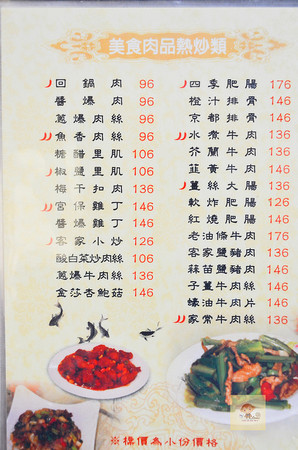 美食肉品熱炒類
回鍋肉 96
醬爆肉 96
蔥爆肉絲 96
魚香肉絲 96
糖醋里肌 106
椒鹽里肌 106
梅干扣肉 136
宮保雞丁 146
醬爆雞丁 146
客家小炒 126
酸白菜炒肉絲 136
蔥爆牛肉絲 136
金莎杏鮑菇 146
四季肥腸 176
橙汁排骨 146
京都排骨 146
水煮牛肉 136
芥蘭牛肉 136
韮黃牛肉 136
薑絲大腸 136
軟炸肥腸 126
紅燒肥腸 146
老油條牛肉 176
客家鹽豬肉 136
蒜苗鹽豬肉 136
子薑牛肉絲 146
蠔油牛肉片 146
家常牛肉絲 136
※標價為小份價格